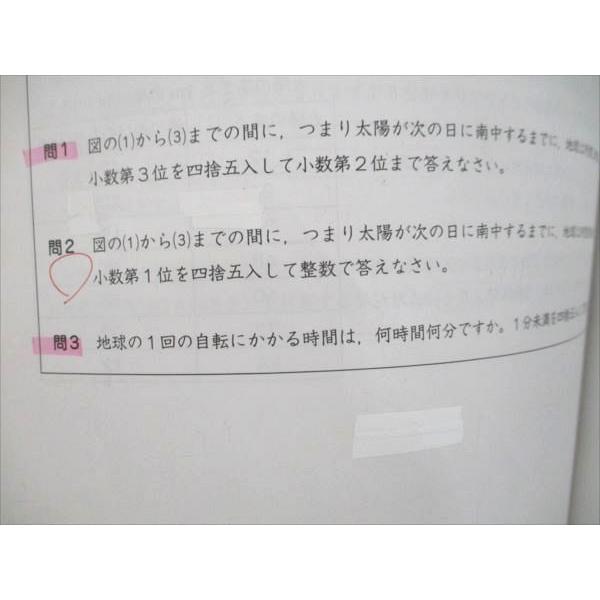 問1 図の(1)から(3)までの間に，つまり太陽が次の日に南中するまでに，地球は
小数第3位を四捨五入して小数第2位まで答えなさい。
問2 図の(1)から(3)までの間に，つまり太陽が次の日に南中するまでに，地球は
小数第1位を四捨五入して整数で答えなさい。
問3 地球の1回の自転にかかる時間は，何時間何分ですか。1分未満を四捨五入